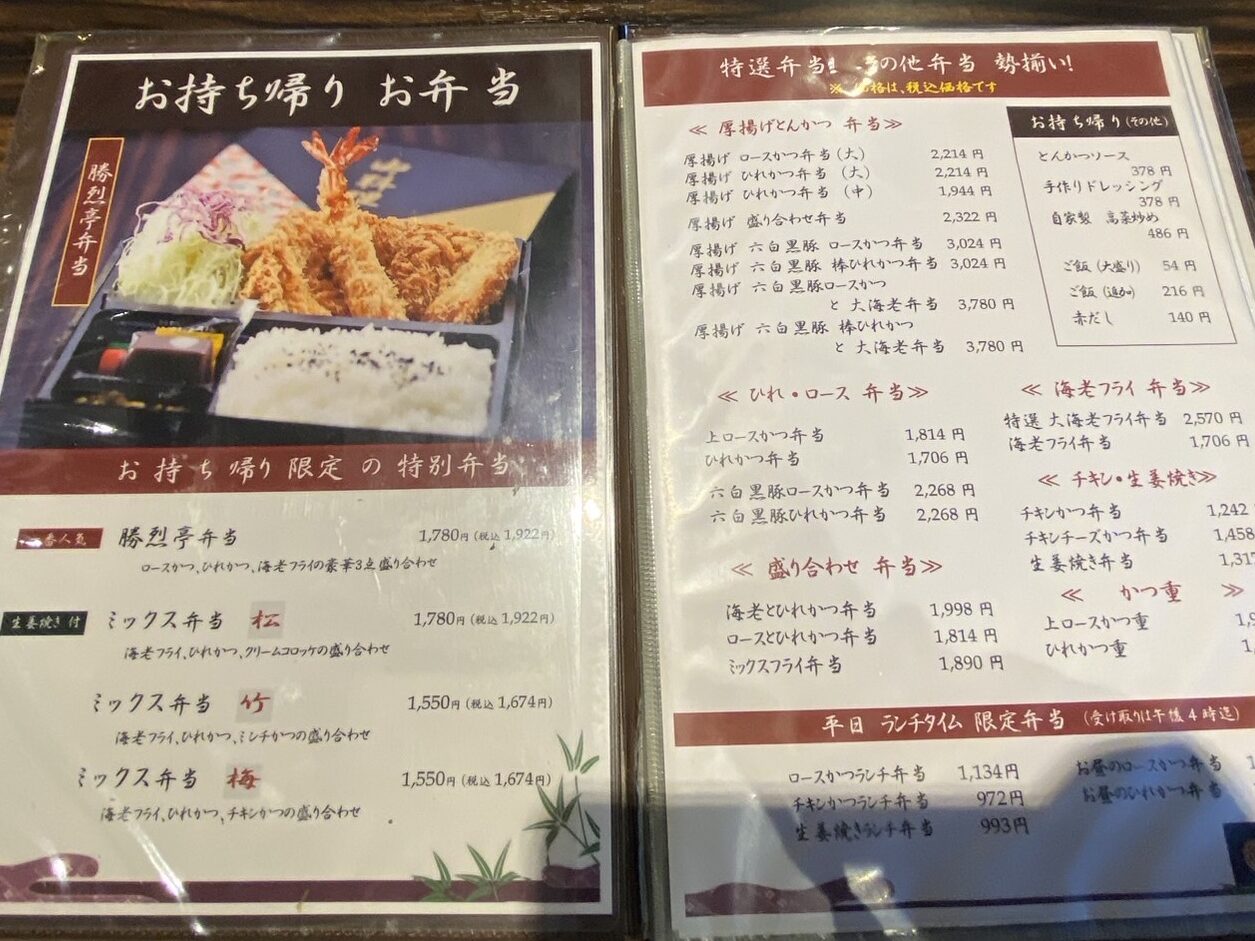 お持ち帰り お弁当
勝烈亭弁当
お持ち帰り限定の特別弁当
一番人気 勝烈亭弁当 1,780円(税込1,922円)
ロースかつ、ひれかつ、海老フライの豪華3点盛り合わせ
生姜焼き付 ミックス弁当 松 1,780円(税込1,922円)
海老フライ、ひれかつ、クリームコロッケの盛り合わせ
ミックス弁当 竹 1,550円(税込1,674円)
海老フライ、ひれかつ、ミンチかつの盛り合わせ
ミックス弁当 梅 1,550円(税込1,674円)
海老フライ、ひれかつ、チキンかつの盛り合わせ
特選弁当! その他弁当 勢揃い!
※ 価格は、税込価格です
≪ 厚揚げとんかつ 弁当≫
厚揚げ ロースかつ弁当(大) 2,214円
厚揚げ ひれかつ弁当 (大) 2,214円
厚揚げ ひれかつ弁当 (中) 1,944円
厚揚げ 盛り合わせ弁当 2,322円
厚揚げ 六白黒豚 ロースかつ弁当 3,024円
厚揚げ 六白黒豚 棒ひれかつ弁当 3,024円
厚揚げ 六白黒豚ロースかつ
と 大海老弁当 3,780円
厚揚げ 六白黒豚 棒ひれかつ
と 大海老弁当 3,780円
お持ち帰り(その他)
とんかつソース
378円
手作りドレッシング
378円
自家製 高菜炒め
486円
ご飯(大盛り) 54円
ご飯(追加) 216円
赤だし 140円
≪ ひれ・ロース 弁当≫
上ロースかつ弁当 1,814円
ひれかつ弁当 1,706円
六白黒豚ロースかつ弁当 2,268円
六白黒豚ひれかつ弁当 2,268円
≪ 盛り合わせ 弁当≫
海老とひれかつ弁当 1,998円
ロースとひれかつ弁当 1,814円
ミックスフライ弁当 1,890円
≪ 海老フライ 弁当≫
特選 大海老フライ弁当 2,570円
海老フライ弁当 1,706円
≪ チキン・生姜焼き≫
チキンかつ弁当 1,242
チキンチーズかつ弁当 1,458
生姜焼き弁当 1,317
≪ かつ重 ≫
上ロースかつ重
ひれかつ重
平日 ランチタイム 限定弁当 (受け取りは午後4時迄)
ロースかつランチ弁当 1,134円
チキンかつランチ弁当 972円
生姜焼きランチ弁当 993円
お昼のロースかつ弁当
お昼のひれかつ弁当